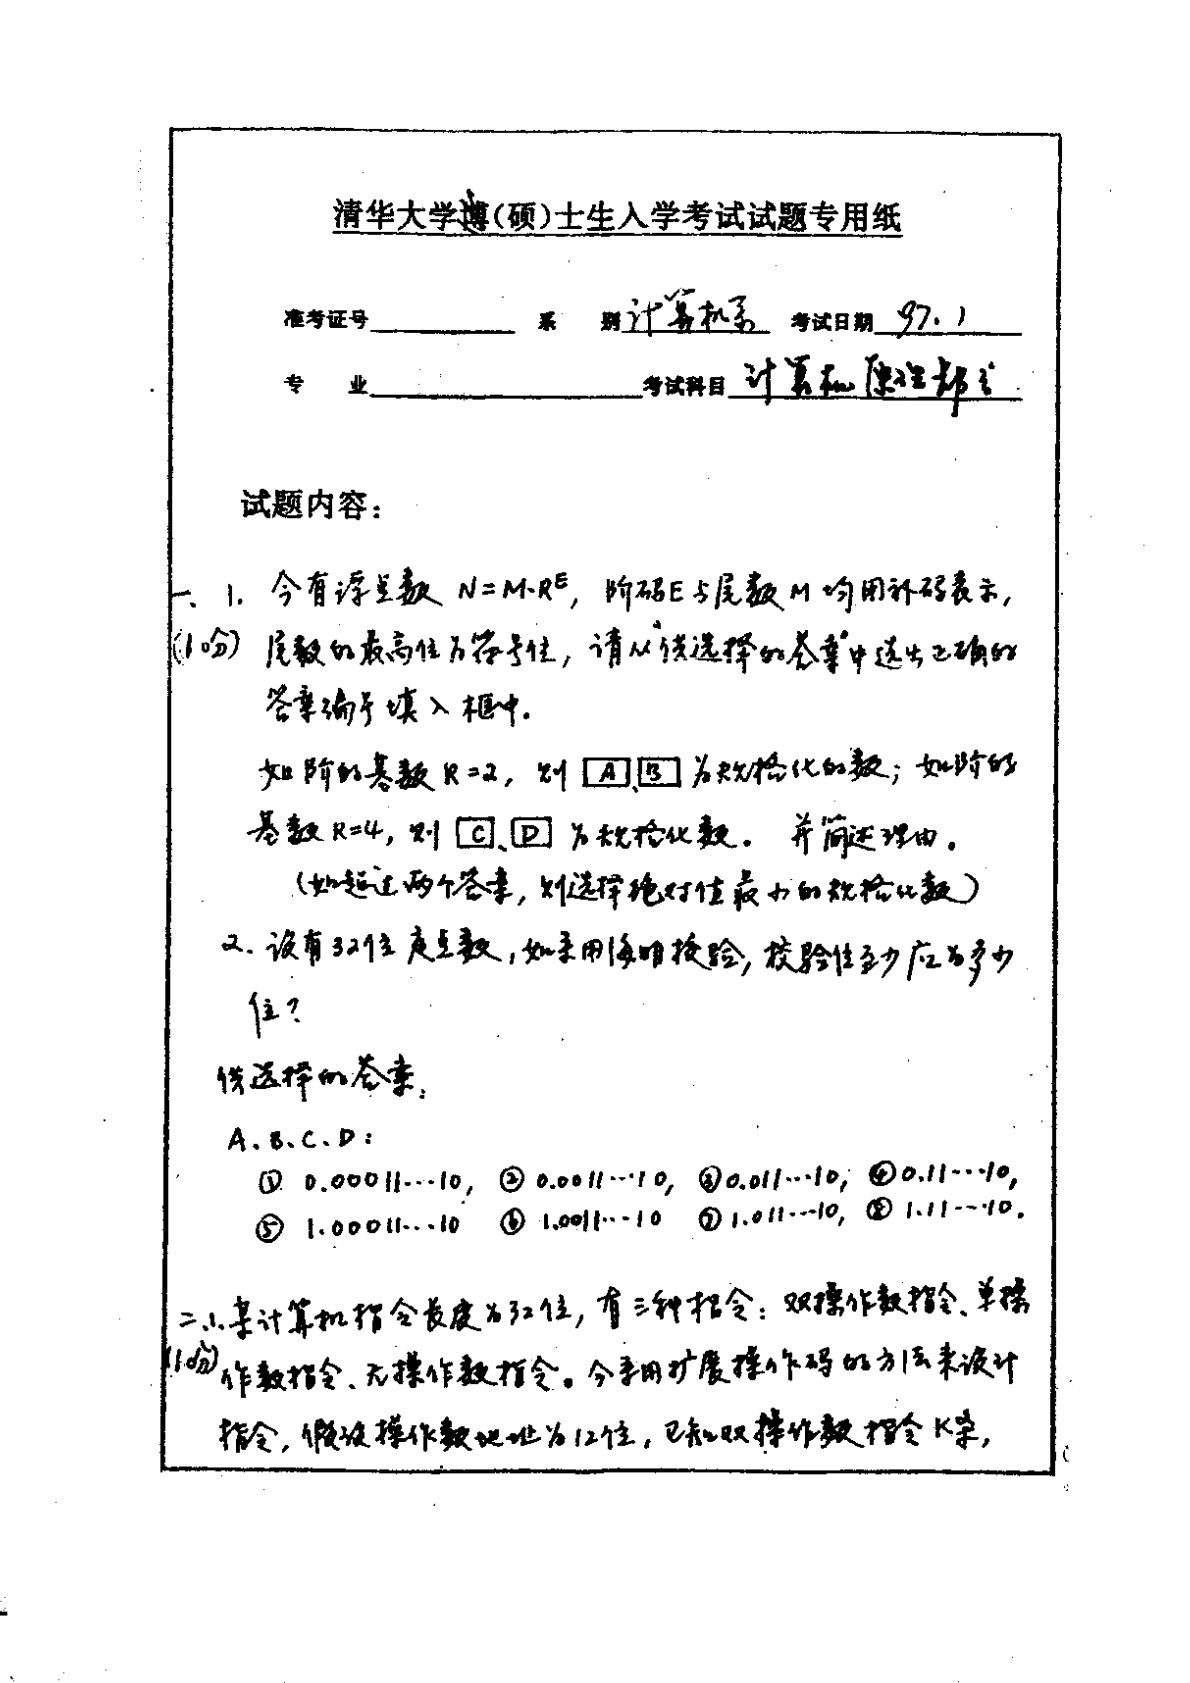 清华大学博(硕)士生入学考试试题专用纸
准考证号 系 别 计算机系 考试日期 97.1
专 业 考试科目 计算机原理部分
试题内容:
一、1. 今有浮点数 N=M·R^E, 阶码E与尾数M均用补码表示,
(10分) 尾数的最高位为符号位, 请从"供选择的答案"中选出正确的
答案编号填入框中.
如阶的基数R=2, 则 A、B 为规格化的数; 如阶的
基数R=4, 则 C、D 为规格化数. 并简述理由.
(如超过两个答案, 则选择绝对值最小的规格化数)
2. 设有32位定点数, 如采用海明校验, 校验位至少应为多少
位?
供选择的答案:
A、B、C、D:
① 0.00011…10, ② 0.0011…10, ③ 0.011…10, ④ 0.11…10,
⑤ 1.00011…10 ⑥ 1.0011…10 ⑦ 1.011…10, ⑧ 1.11…10.
二、1. 某计算机指令长度为32位, 有三种指令: 双操作数指令、单操
(10分) 作数指令、无操作数指令。今采用扩展操作码的方法来设计
指令, 假设操作数地址为12位, 已知双操作数指令K条,